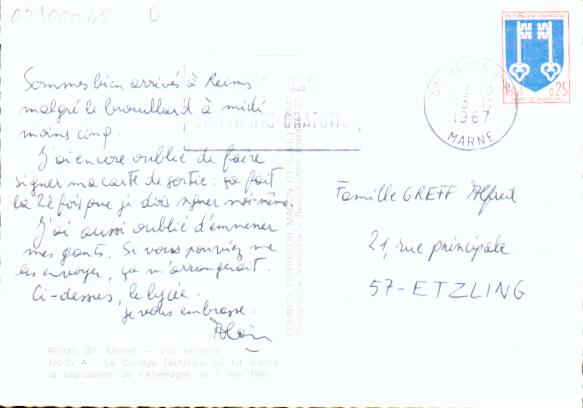 05100045 D
Sommes bien arrivés à Reims
malgré le brouillard à midi
moins cinq.
J'ai encore oublié de faire
signer ma carte de sortie : ça fait
la 2è fois que je dois signer moi-même.
J'ai aussi oublié d'emmener
mes gants. Si vous pouviez me
les envoyer, ça m'arrangerait.
Ci-dessus, le lycée.
je vous embrasse.
Alain
REIMS (51 Marne) - Vue aérienne
176-25 A. Le Collège Technique où fut signée
la capitulation de l'Allemagne, le 7 mai 1945
COMBIER IMPRIMEUR MACON
Photographie Véritable - Reproduction
REPUBLIQUE FRANÇAISE
0,25
MONT DE MARSAN
51 REIMS
13-11
1967
MARNE
Famille GREFF Alfred
21, rue principale
57-ETZLING